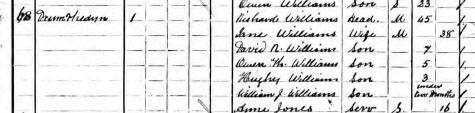 Owen Williams Son S 23 /
68 1 Richard Williams Head M 45 /
Jane Williams Wife M 38 /
David R. Williams Son 7 /
Owen Williams Son 5 /
Hughey Williams Son 3 /
William J. Williams Son under two Months /
Anne Jones Serv S 16 /